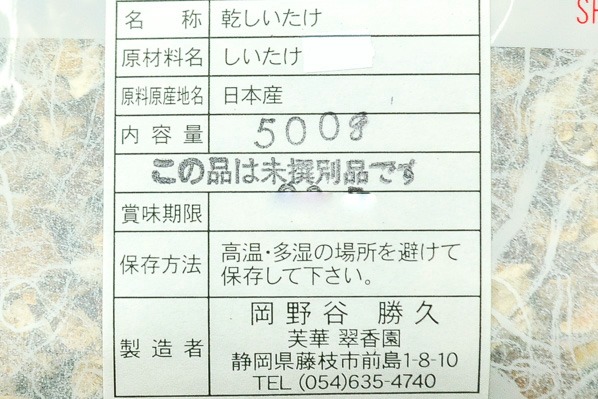 SH
名称 乾しいたけ
原材料名 しいたけ
原料原産地名 日本産
内容量 500g
この品は未撰別品です
賞味期限
保存方法 高温・多湿の場所を避けて
保存して下さい。
製造者 岡野谷 勝久
芙華 翠香園
静岡県藤枝市前島1-8-10
TEL (054)635-4740